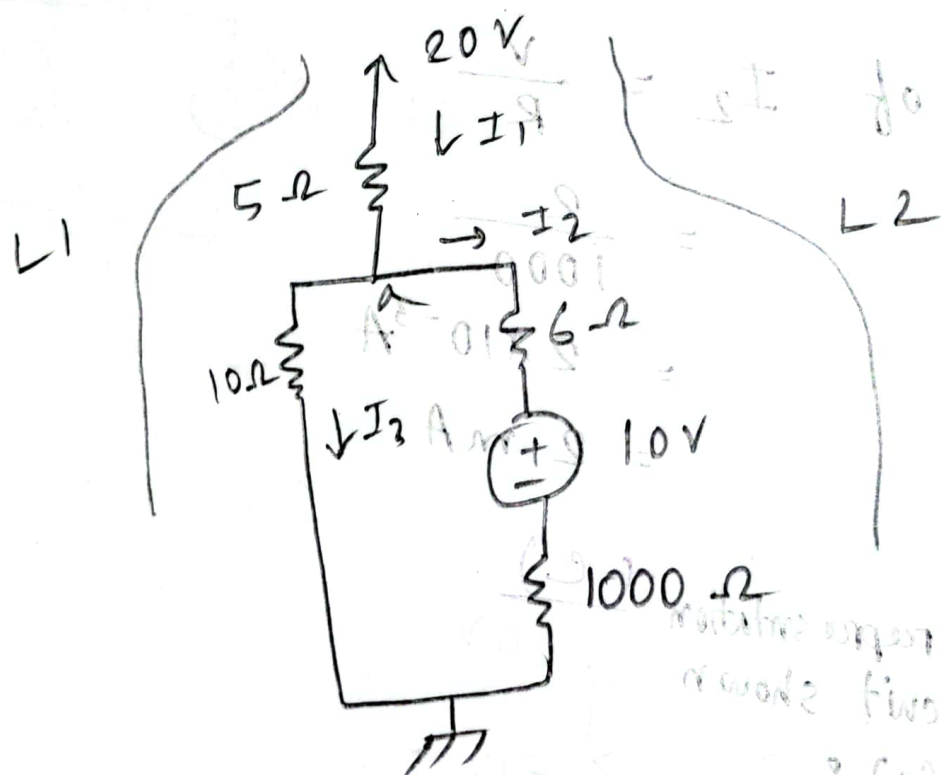 20 V
↓ I₁
5 Ω
→ I₂
L1
L2
a
6 Ω
10 Ω
↓ I₃
+
10 V
−
1000 Ω